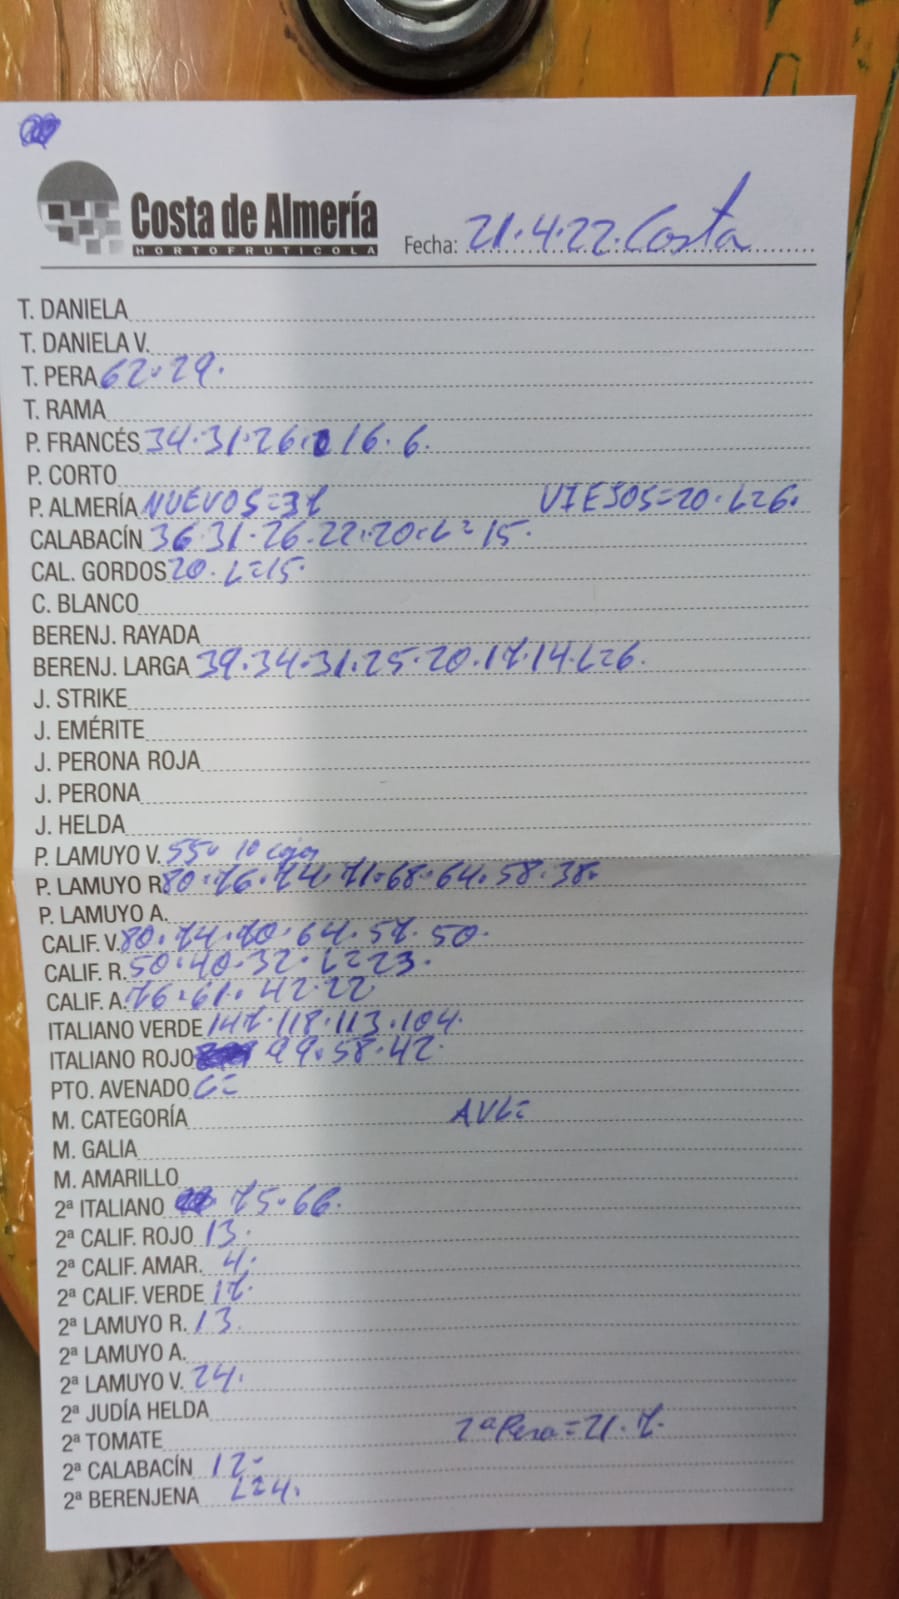 Costa de Almería
HORTOFRUTICOLA
Fecha: 21.4.22. Costa
T. DANIELA
T. DANIELA V.
T. PERA 62.29.
T. RAMA
P. FRANCÉS 34.31.26. 16.6.
P. CORTO
P. ALMERÍA NUEVOS=37 VIEJOS=20. L=6.
CALABACÍN 36.31.26.22.20.L=15.
CAL. GORDOS 20. L=15.
C. BLANCO
BERENJ. RAYADA
BERENJ. LARGA 39.34.31.25.20.17.14.L=6.
J. STRIKE
J. EMÉRITE
J. PERONA ROJA
J. PERONA
J. HELDA
P. LAMUYO V. 55. 10 cajas
P. LAMUYO R. 80.76.74.71.68.64.58.38.
P. LAMUYO A.
CALIF. V. 80.74.70.64.57.50.
CALIF. R. 50.40.32. L=23.
CALIF. A. 76.61.42.22
ITALIANO VERDE 147.118.113.104.
ITALIANO ROJO 99.58.42.
PTO. AVENADO L=
M. CATEGORÍA AVL=
M. GALIA
M. AMARILLO
2ª ITALIANO 75.66.
2ª CALIF. ROJO 13.
2ª CALIF. AMAR. 4.
2ª CALIF. VERDE 17.
2ª LAMUYO R. 13.
2ª LAMUYO A.
2ª LAMUYO V. 24.
2ª JUDÍA HELDA
2ª TOMATE 2ª Pera=21.7.
2ª CALABACÍN 12.
2ª BERENJENA L=4.